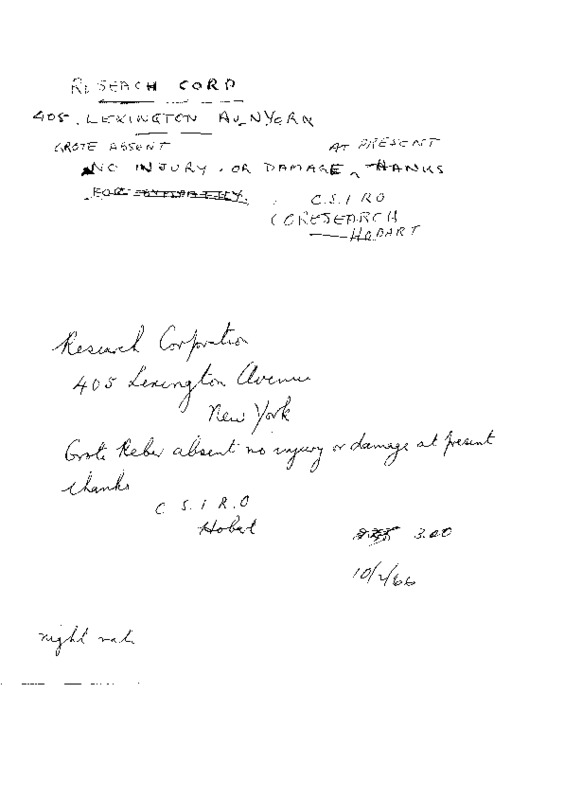 RESEACH CORP
405. LEXINGTON AV. NYORK
GROTE ABSENT AT PRESENT
NO INJURY. OR DAMAGE THANKS
FOR
C.S.I RO
(CORESEARCH
HOBART
Research Corporation
405 Lexington Avenue
New York
Grote Reber absent no injury or damage at present
thanks
C. S. I R.O
Hobart
3.00
10/2/66
night rate